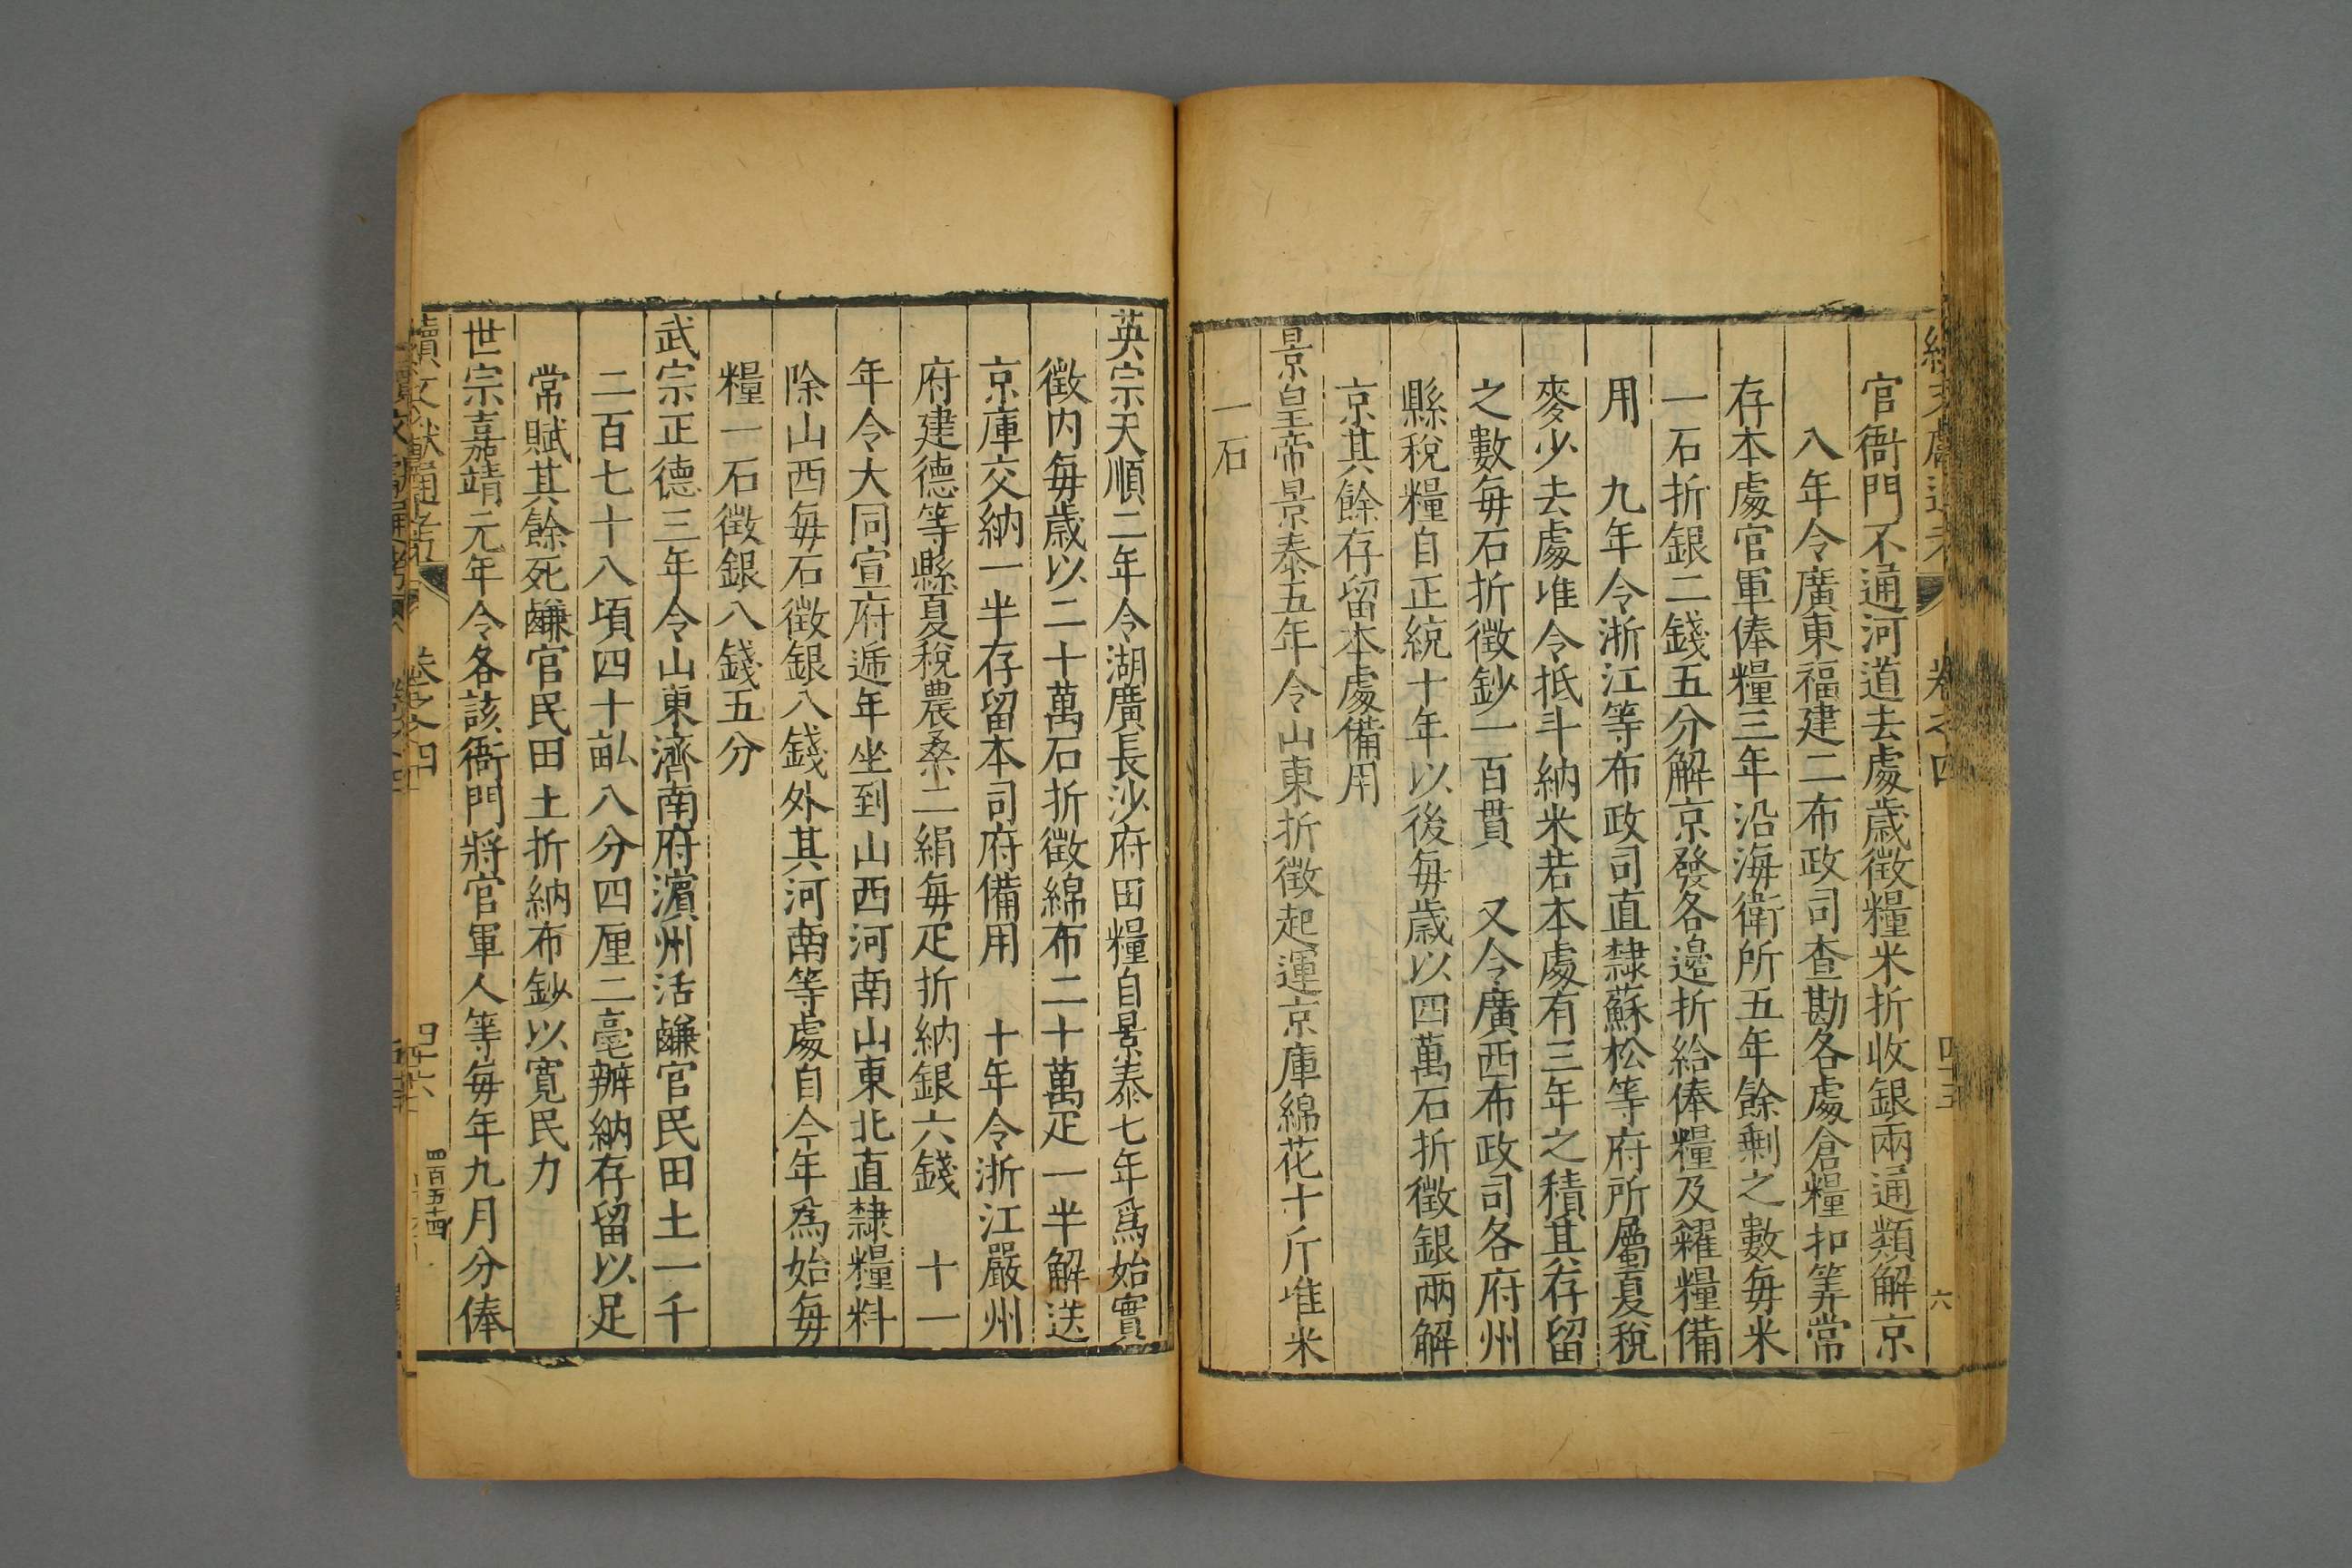 官衙門不通河道去處歲徵糧米折收銀兩通類解京
八年令廣東福建二布政司查勘各處倉糧扣筭常
存本處官軍俸糧三年沿海衛所五年餘剩之數每米
一石折銀二錢五分解京發各邊折給俸糧及糴糧備
用　九年令浙江等布政司直隸蘇松等府所屬夏稅
麥少去處准令抵斗納米若本處有三年之積其存留
之數每石折徵鈔一百貫　又令廣西布政司各府州
縣稅糧自正統十年以後每歲以四萬石折徵銀兩解
京其餘存留本處備用
景皇帝景泰五年令山東折徵起運京庫綿花十斤准米
一石
英宗天順二年令湖廣長沙府田糧自景泰七年爲始實
徵内每歲以二十萬石折徵綿布二十萬疋一半解送
京庫交納一半存留本司府備用　十年令浙江嚴州
府建德等縣夏稅農桑二絹每疋折納銀六錢　十一
年令大同宣府遞年坐到山西河南山東北直隸糧料
除山西每石徵銀八錢外其河南等處自今年爲始每
糧一石徵銀八錢五分
武宗正德三年令山東濟南府濱州活鹻官民田土一千
二百七十八頃四十畝八分四厘二毫辦納存留以足
常賦其餘死鹻官民田土折納布鈔以寬民力
世宗嘉靖元年令各該衙門將官軍人等每年九月分俸
續文獻通考
卷之四
四十六
四百五十四